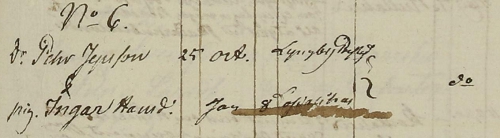 No 6.
Dr. Pehr Jepsson 25 oct. Lyngby
&
pig. Ingar Hansdr. Jan
do